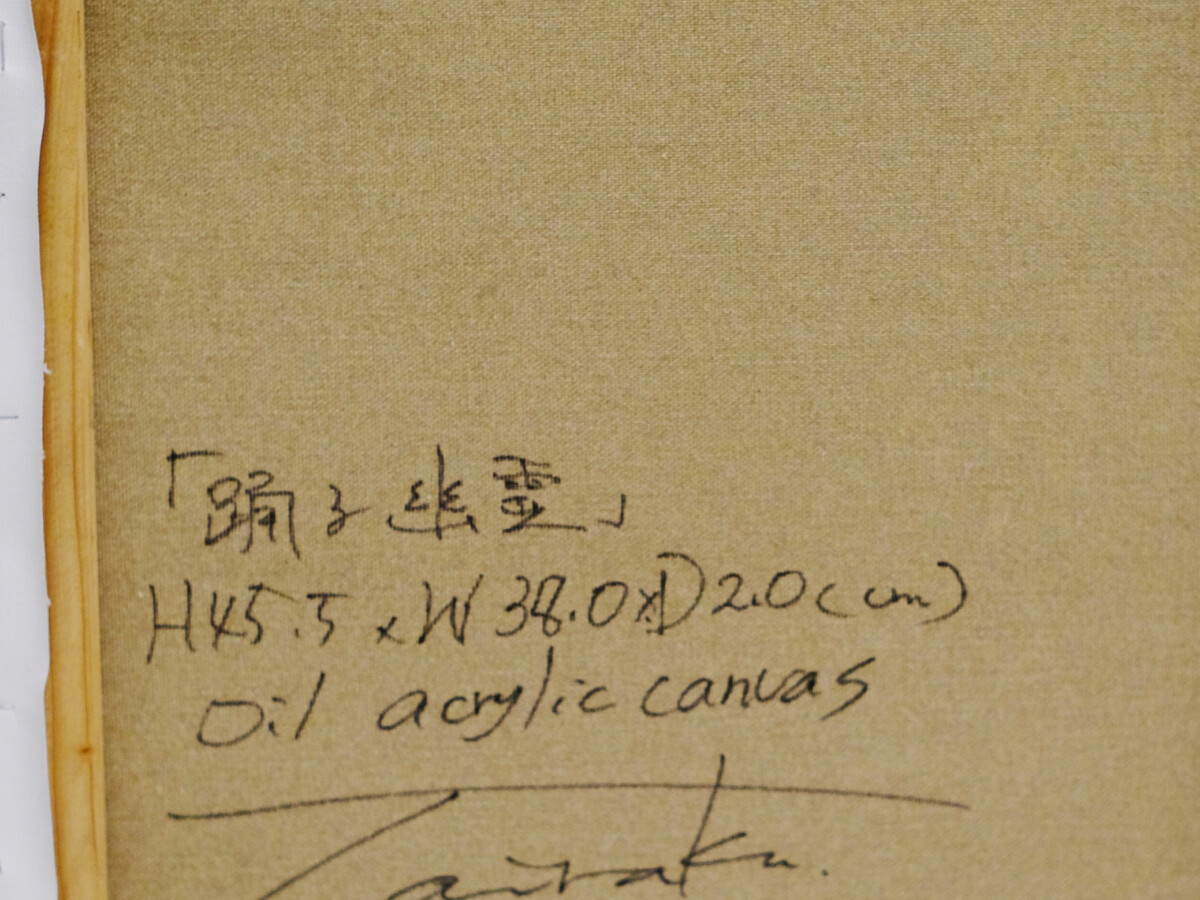 「踊る幽霊」
H45.5 x W 38.0 x D 2.0 (cm)
Oil acrylic canvas